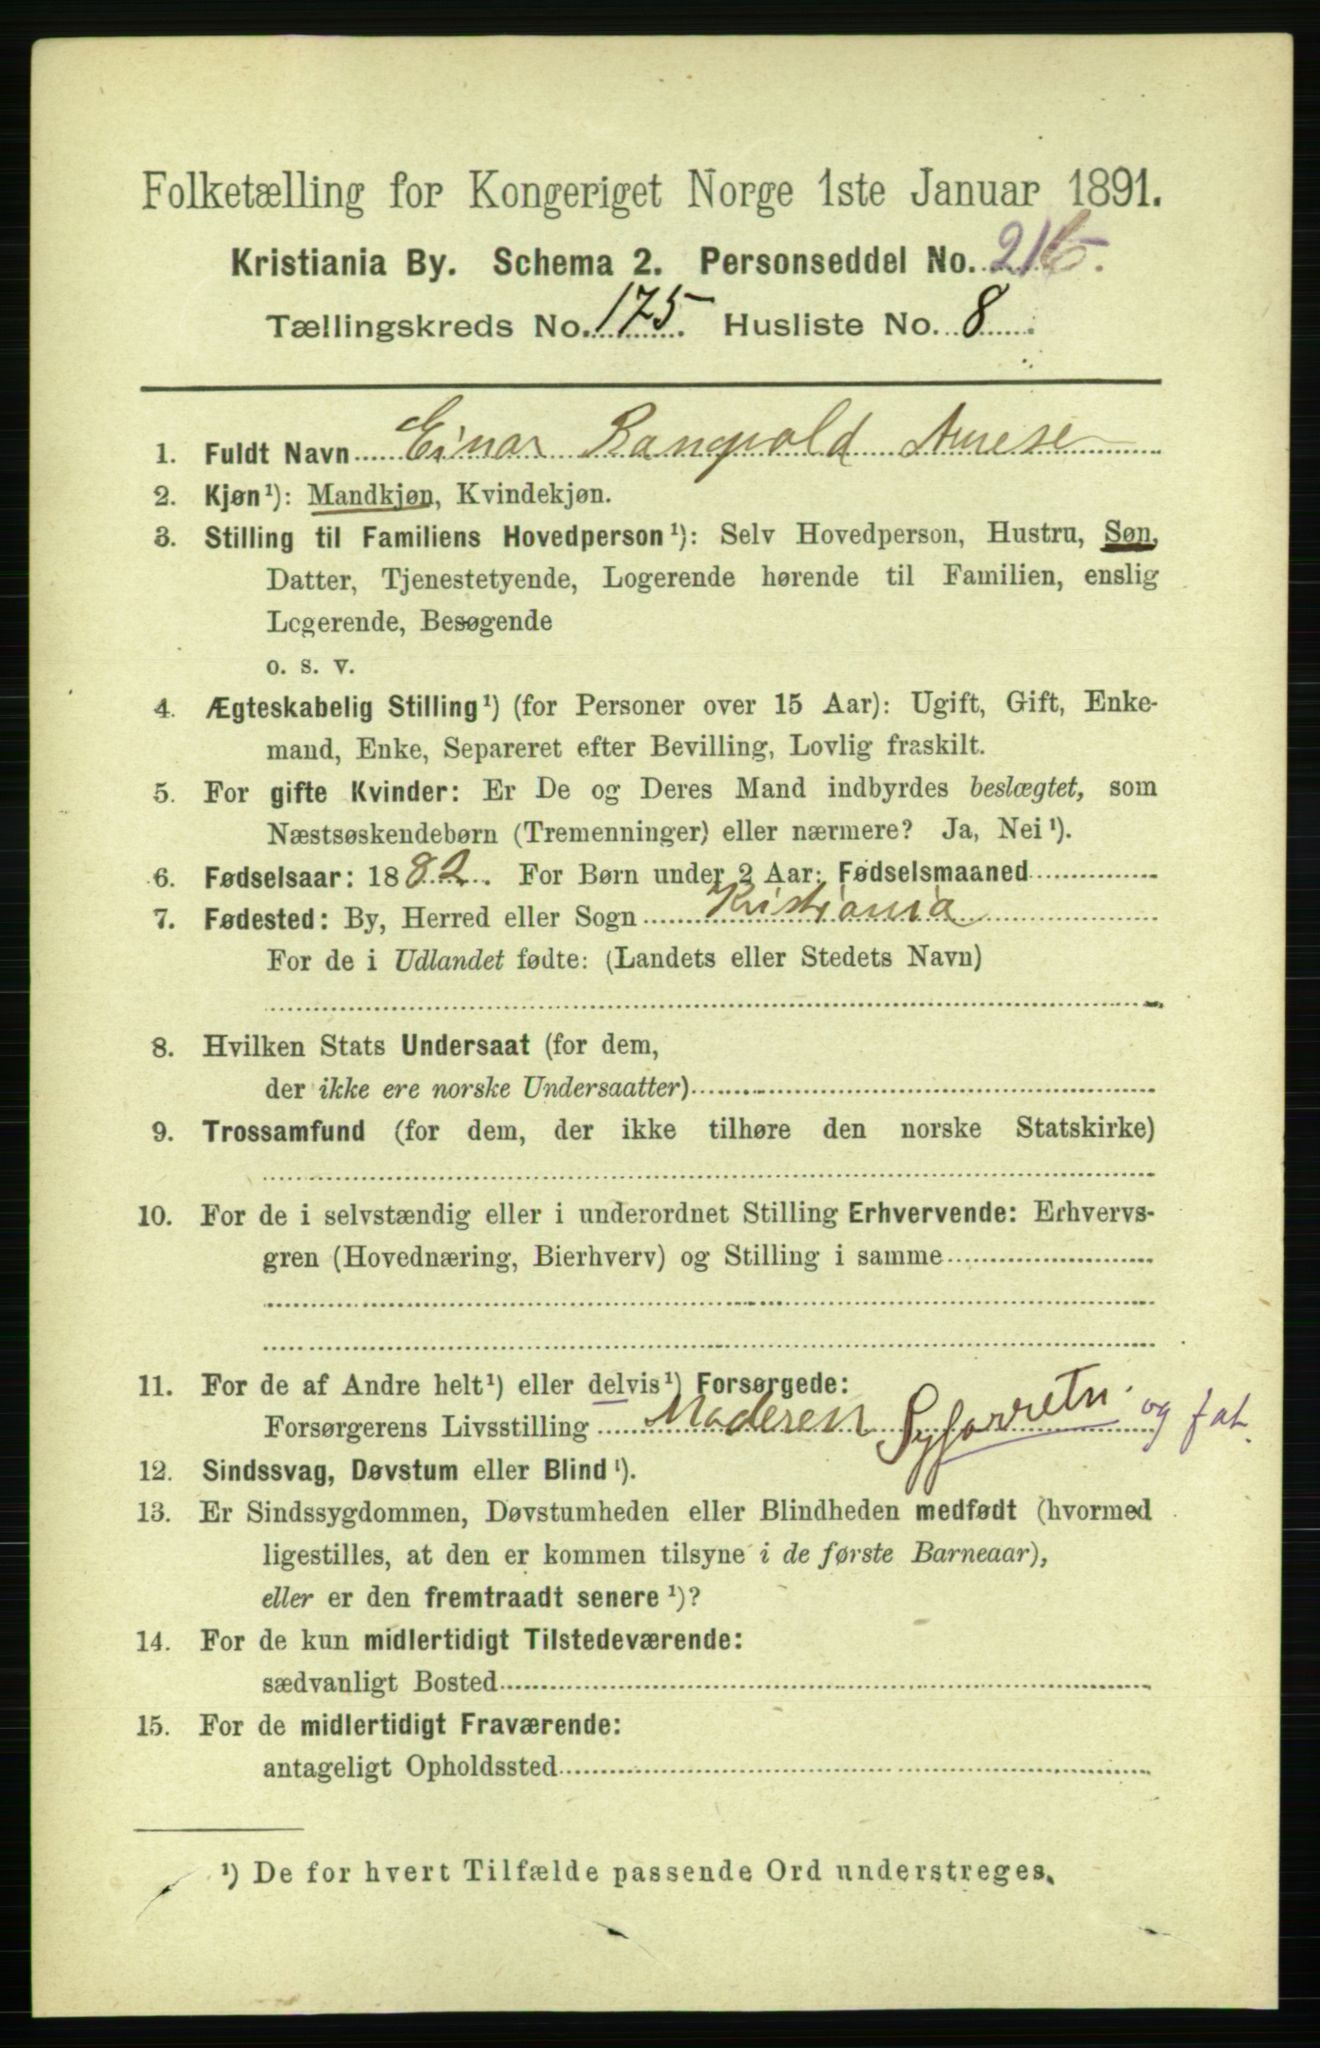 Folketælling for Kongeriget Norge 1ste Januar 1891.
Kristiania By. Schema 2. Personseddel No. 216.
Tællingskreds No. 175. Husliste No. 8.
1. Fuldt Navn Einar Rangvald
2. Kjøn¹): Mandkjøn, Kvindekjøn.
3. Stilling til Familiens Hovedperson¹): Selv Hovedperson, Hustru, Søn,
Datter, Tjenestetyende, Logerende hørende til Familien, enslig
Logerende, Besøgende
o. s. v.
4. Ægteskabelig Stilling¹) (for Personer over 15 Aar): Ugift, Gift, Enke-
mand, Enke, Separeret efter Bevilling, Lovlig fraskilt.
5. For gifte Kvinder: Er De og Deres Mand indbyrdes beslægtet, som
Næstsøskendebørn (Tremenninger) eller nærmere? Ja, Nei¹).
6. Fødselsaar: 1882. For Børn under 2 Aar: Fødselsmaaned
7. Fødested: By, Herred eller Sogn Kristiania
For de i Udlandet fødte: (Landets eller Stedets Navn)
8. Hvilken Stats Undersaat (for dem,
der ikke ere norske Undersaatter)
9. Trossamfund (for dem, der ikke tilhøre den norske Statskirke)
10. For de i selvstændig eller i underordnet Stilling Erhvervende: Erhvervs-
gren (Hovednæring, Bierhverv) og Stilling i samme
11. For de af Andre helt¹) eller delvis¹) Forsørgede:
Forsørgerens Livsstilling Moderen Syforretn. og fat.
12. Sindssvag, Døvstum eller Blind¹).
13. Er Sindssygdommen, Døvstumheden eller Blindheden medfødt (hvormed
ligestilles, at den er kommen tilsyne i de første Barneaar),
eller er den fremtraadt senere¹)?
14. For de kun midlertidigt Tilstedeværende:
sædvanligt Bosted
15. For de midlertidigt Fraværende:
antageligt Opholdssted
¹) De for hvert Tilfælde passende Ord understreges.